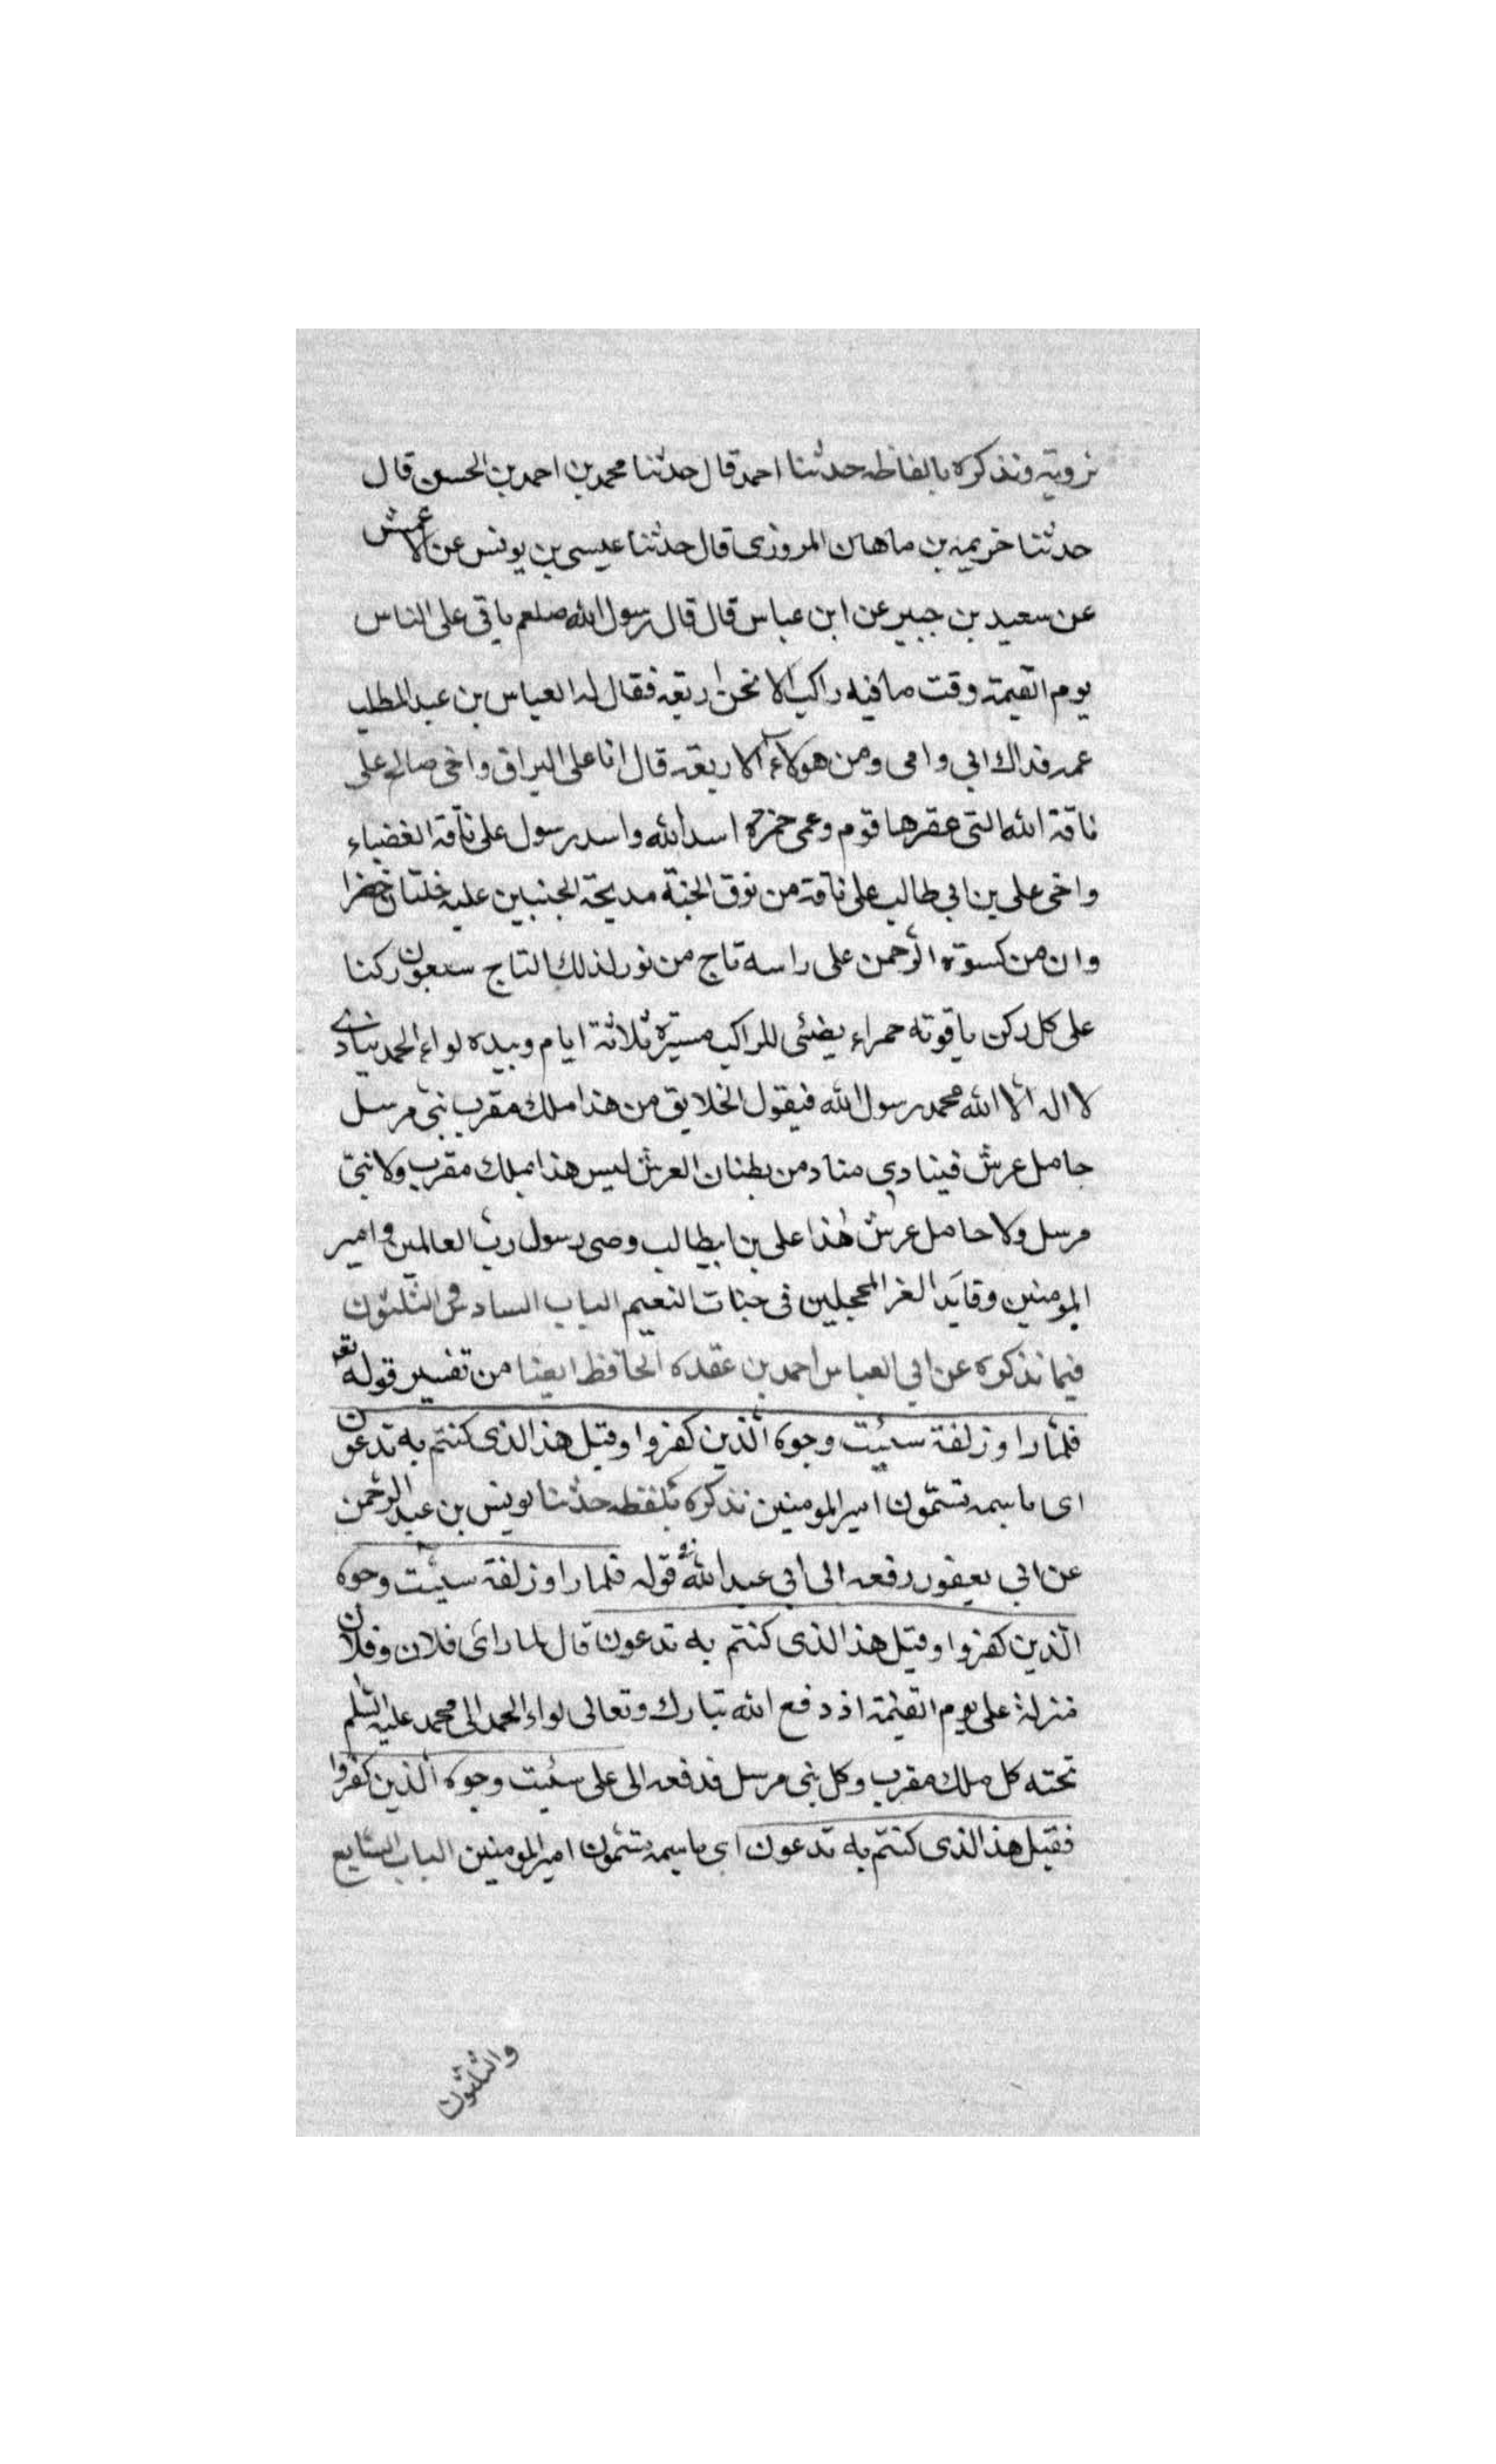 نرويه ونذكره بالفاظه حدثنا احمد قال حدثنا محمد بن احمد بن الحسن قال
حدثنا خزيمه بن ماهان المروزى قال حدثنا عيسى بن يونس عن الاعمش
عن سعيد بن جبير عن ابن عباس قال قال رسول الله صلعم ياتى على الناس
يوم القيمة وقت ما فيه راكب الا نحن اربعه فقال له العباس بن عبد المطلب
عمه فداك ابي وامى ومن هولاء الاربعة قال انا على البراق واخى صالح على
ناقة الله التى عقرها قوم وعمى حمزة اسد الله واسد رسول على ناقة الغضباء
واخى على بن ابي طالب على ناقة من نوق الجنة مدبجة الجنبين عليه خلتان خضرا
وان من كسوة الرحمن على راسه تاج من نور لذلك التاج سبعون ركنا
على كل ركن ياقوته حمراء يضئى للراكب مسيرة ثلاثة ايام وبيده لواء الحمد ينادى
لا اله الا الله محمد رسول الله فيقول الخلايق من هذا ملك مقرب نبى مرسل
حامل عرش فينادي مناد من بطنان العرش ليس هذا بملك مقرب ولا نبى
مرسل ولا حامل عرش هذا على بن ابيطالب وصى رسول رب العالمين وامير
المومنين وقايد الغر المحجلين فى جنات النعيم الباب السادس والثلثون
فيما نذكره عن ابي العباس احمد بن عقده الحافظ ايضا من تفسير قوله تع
فلما راوزلفة سيئت وجوه الذين كفروا وقيل هذا الذى كنتم به تدعون
اى باسمه تسمون امير المومنين نذكره بلفظه حدثنا يونس بن عبد الرحمن
عن ابي يعفور رفعه الى ابي عبد الله قوله فلما راوزلفة سيئت وجوه
الذين كفروا وقيل هذا الذى كنتم به تدعون قال لما راى فلان وفلان
منزلة على يوم القيمة اذ دفع الله تبارك وتعالى لواء الحمد الى محمد عليه السلم
تحته كل ملك مقرب وكل نبى مرسل فدفعه الى على سئيت وجوه الذين كفروا
فقيل هذا الذى كنتم به تدعون اى باسمه تسمون امير المومنين الباب السابع
والثلثون